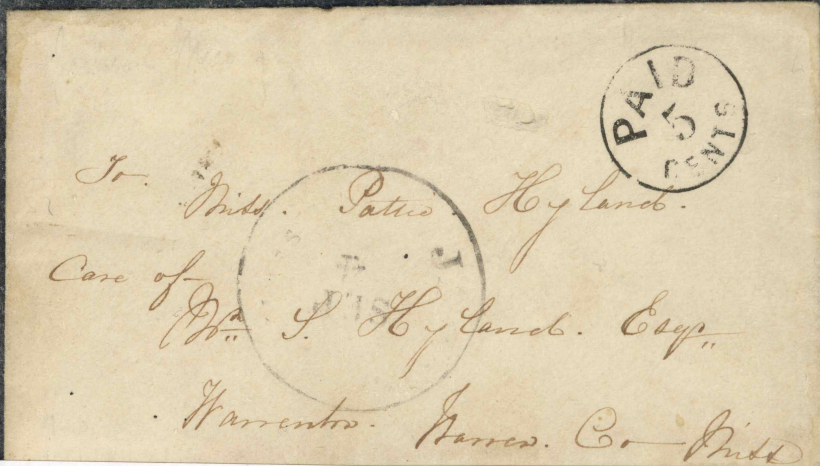 PAID 5 CENTS
To. Miss. Pattie Hyland.
Care of
Wm S. Hyland. Esqr
Warrenton. Warren. Co Miss